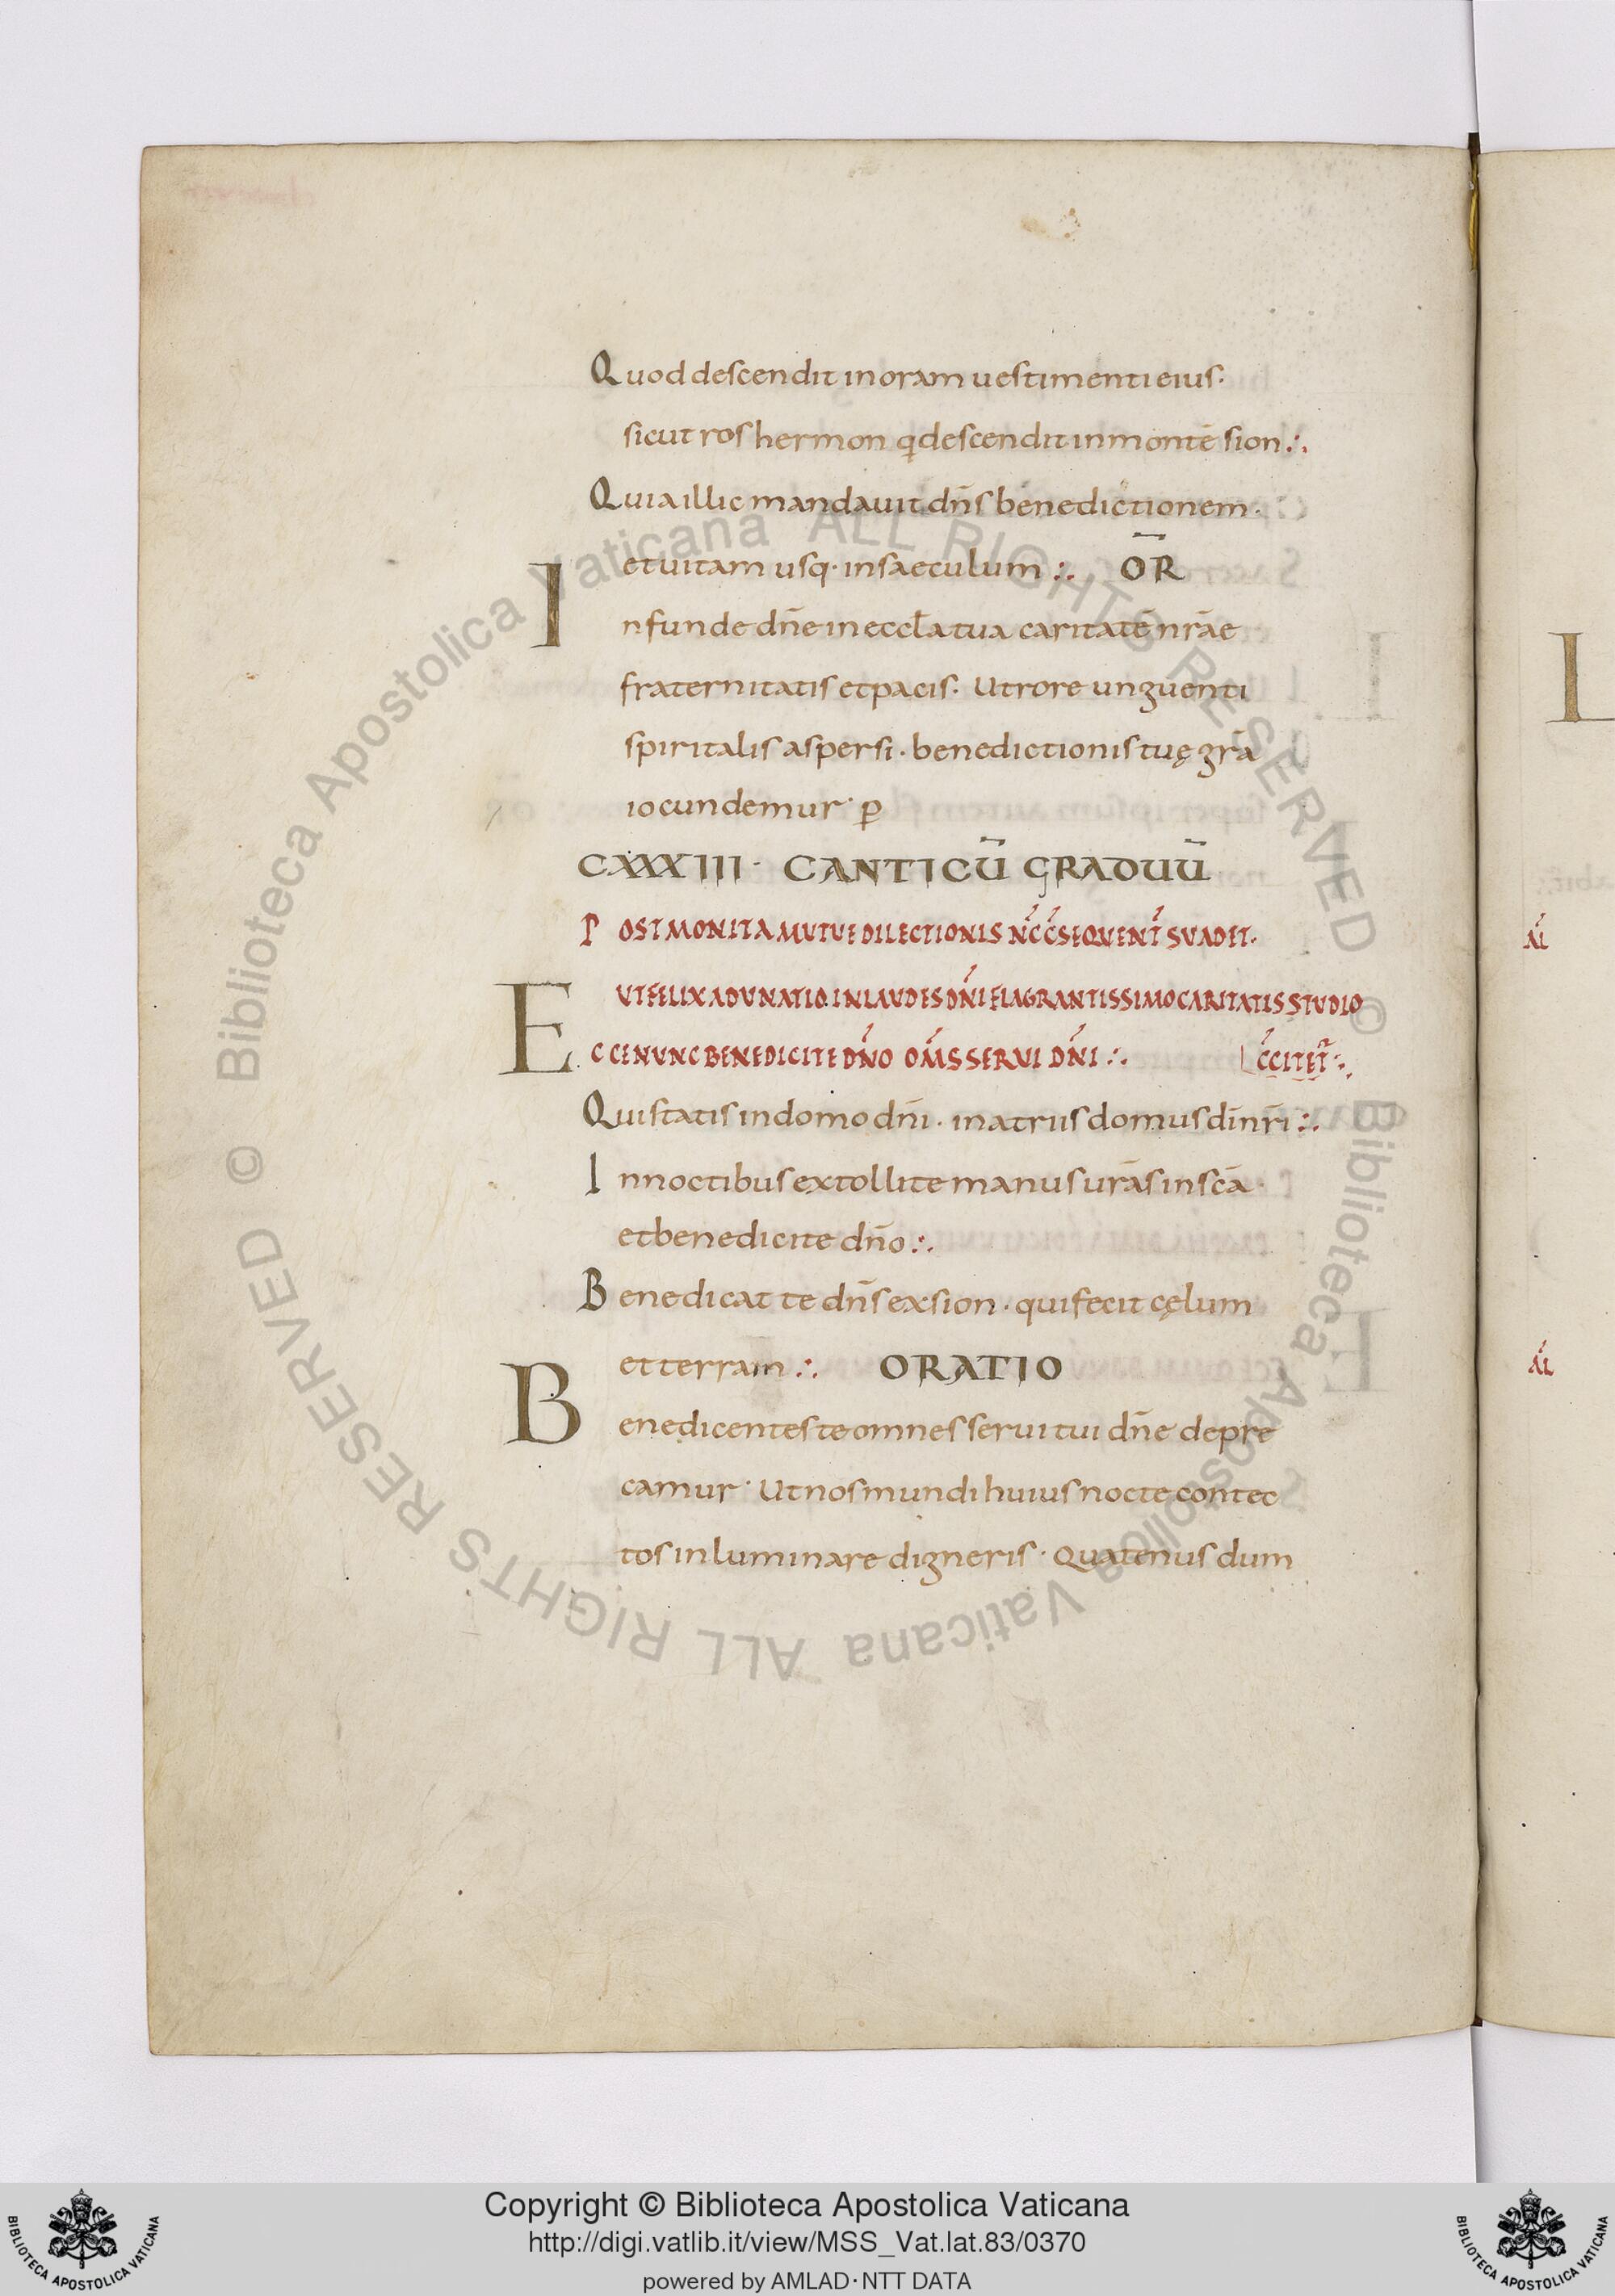 Quod descendit in oram uestimenti eius·
sicut ros hermon qi descendit in montē sion ∴
Quia illic mandauit dn̄s benedictionem·
et uitam usq· in saeculum ∴ ŌR
Infunde dn̄e in eccl̄a tua caritatē nr̄ae
fraternitatis et pacis· Ut rore unguenti
spiritalis aspersi· benedictionis tuę gr̄a
iocundemur· ꝑ
CXXXIII· CANTICŪ GRADUŪ
POST MONITA MUTUE DILECTIONIS N̄C C̄SEQUENT̄ SUADET·
UT FELIX ADUNATIO IN LAUDES DN̄I FLAGRANTISSIMO CARITATIS STUDIO
C̄CITET̄ ∴
ECCE NUNC BENEDICITE DN̄O OM̄S SERUI DN̄I ∴
Qui statis in domo dn̄i· in atriis domus dī nr̄i ∴
In noctibus extollite manus urās in sc̄a·
et benedicite dn̄o ∴
Benedicat te dn̄s ex sion· qui fecit cęlum
et terram ∴ ORATIO
Benedicentes te omnes serui tui dn̄e depre
camur· Ut nos mundi huius nocte contec
tos inluminare digneris· Quatenus dum
L
AL̄
AL̄
© Biblioteca Apostolica Vaticana ALL RIGHTS RESERVED © Biblioteca Apostolica Vaticana ALL RIGHTS RESERVED
BIBLIOTECA APOSTOLICA VATICANA
Copyright © Biblioteca Apostolica Vaticana
http://digi.vatlib.it/view/MSS_Vat.lat.83/0370
powered by AMLAD·NTT DATA
BIBLIOTECA APOSTOLICA VATICANA